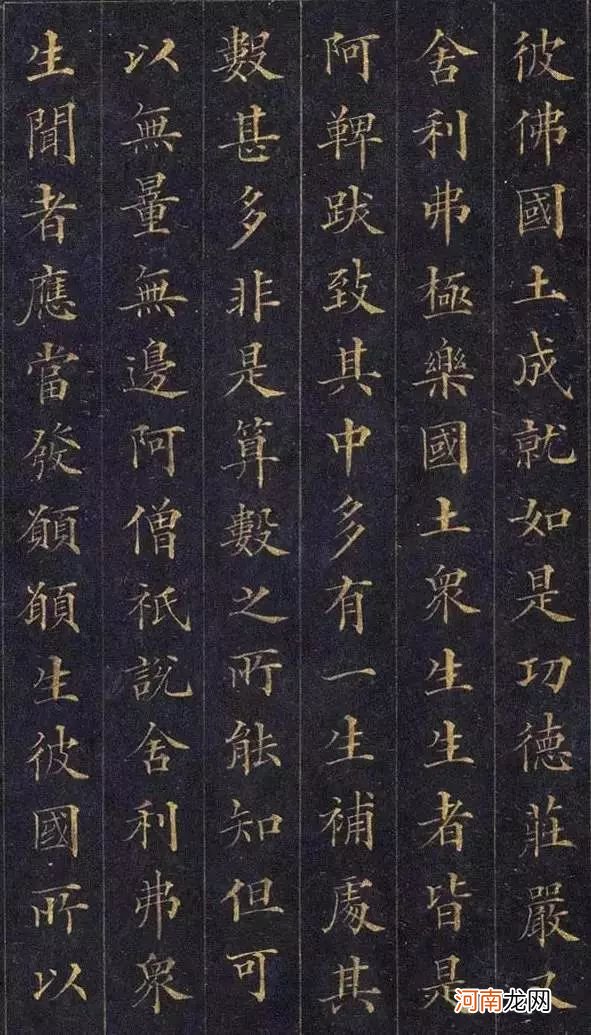 彼佛國土成就如是功德莊嚴又
舍利弗極樂國土衆生生者皆是
阿鞞跋致其中多有一生補處其
數甚多非是算數之所能知但可
以無量無邊阿僧祇說舍利弗衆
生聞者應當發願願生彼國所以
河南龙网